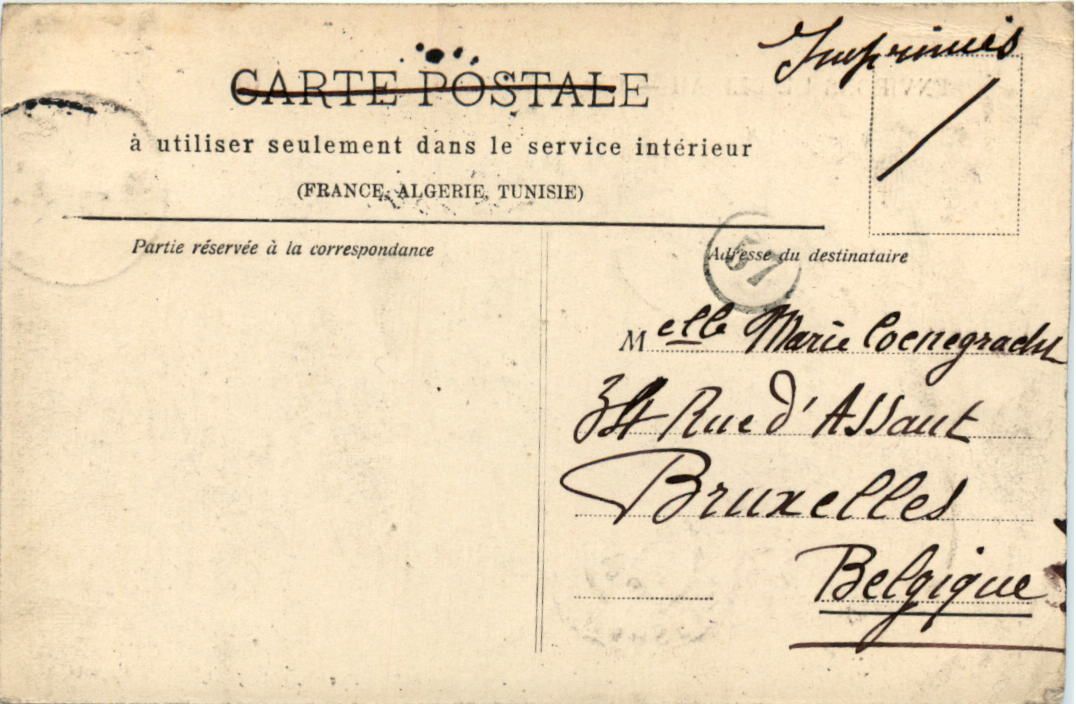 Imprimés
CARTE POSTALE
à utiliser seulement dans le service intérieur
(FRANCE, ALGERIE, TUNISIE)
Partie réservée à la correspondance
Adresse du destinataire
57
Melle Marie Coenegracht
34 Rue d'Assaut
Bruxelles
Belgique